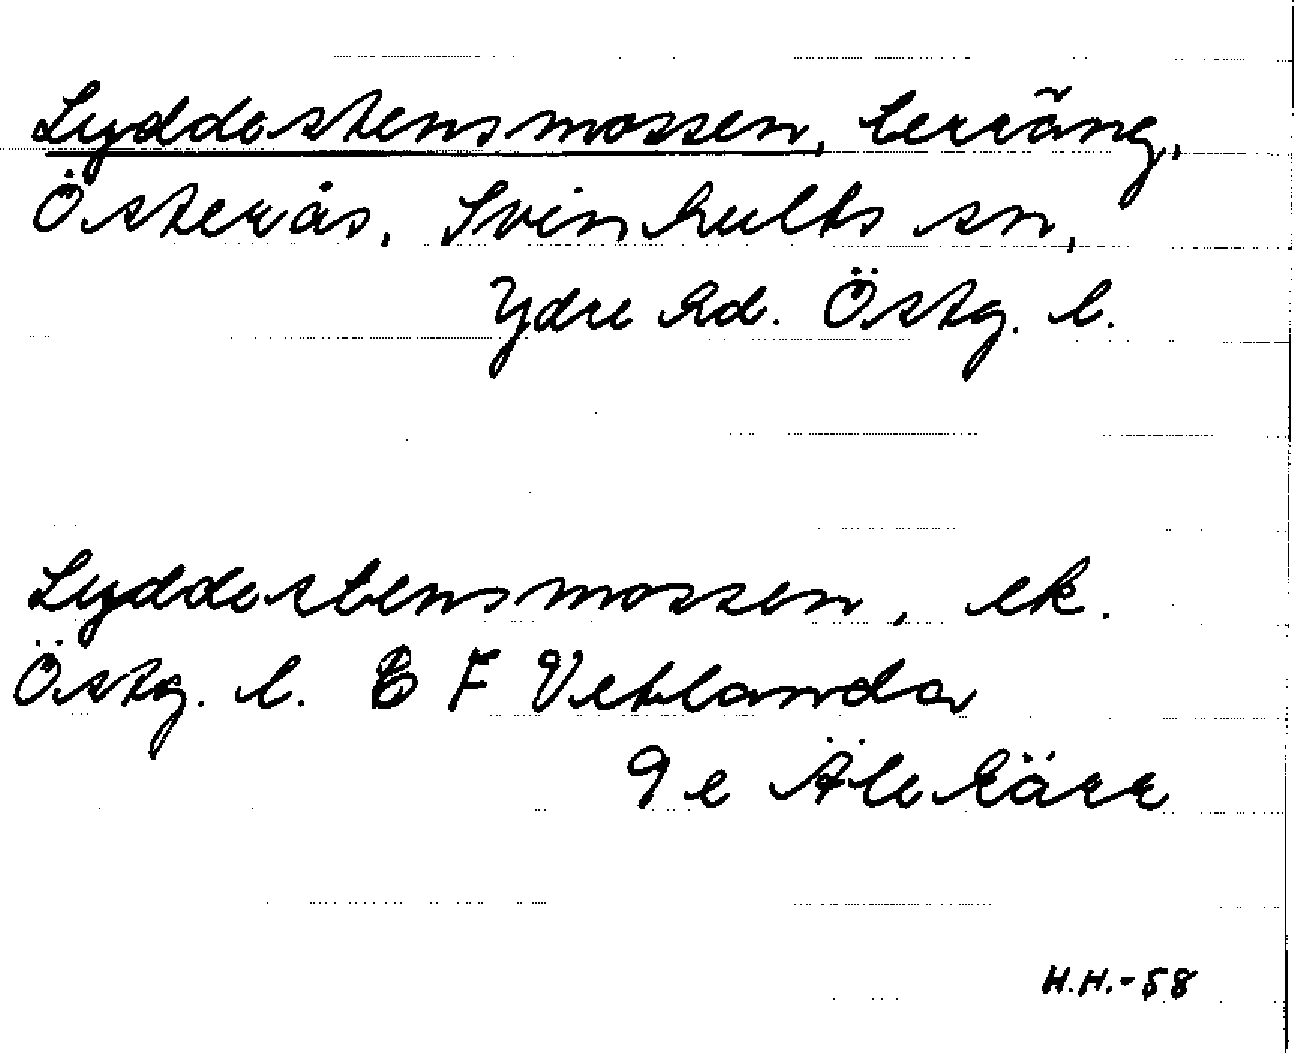 Lyddestensmossen, terräng,
Österås, Svinhults sn,
Ydre hd. Östg. l.
Lyddestensmossen, ek.
Östg. l. E F Vetlanda
9 e Älekärr
H.H.-58